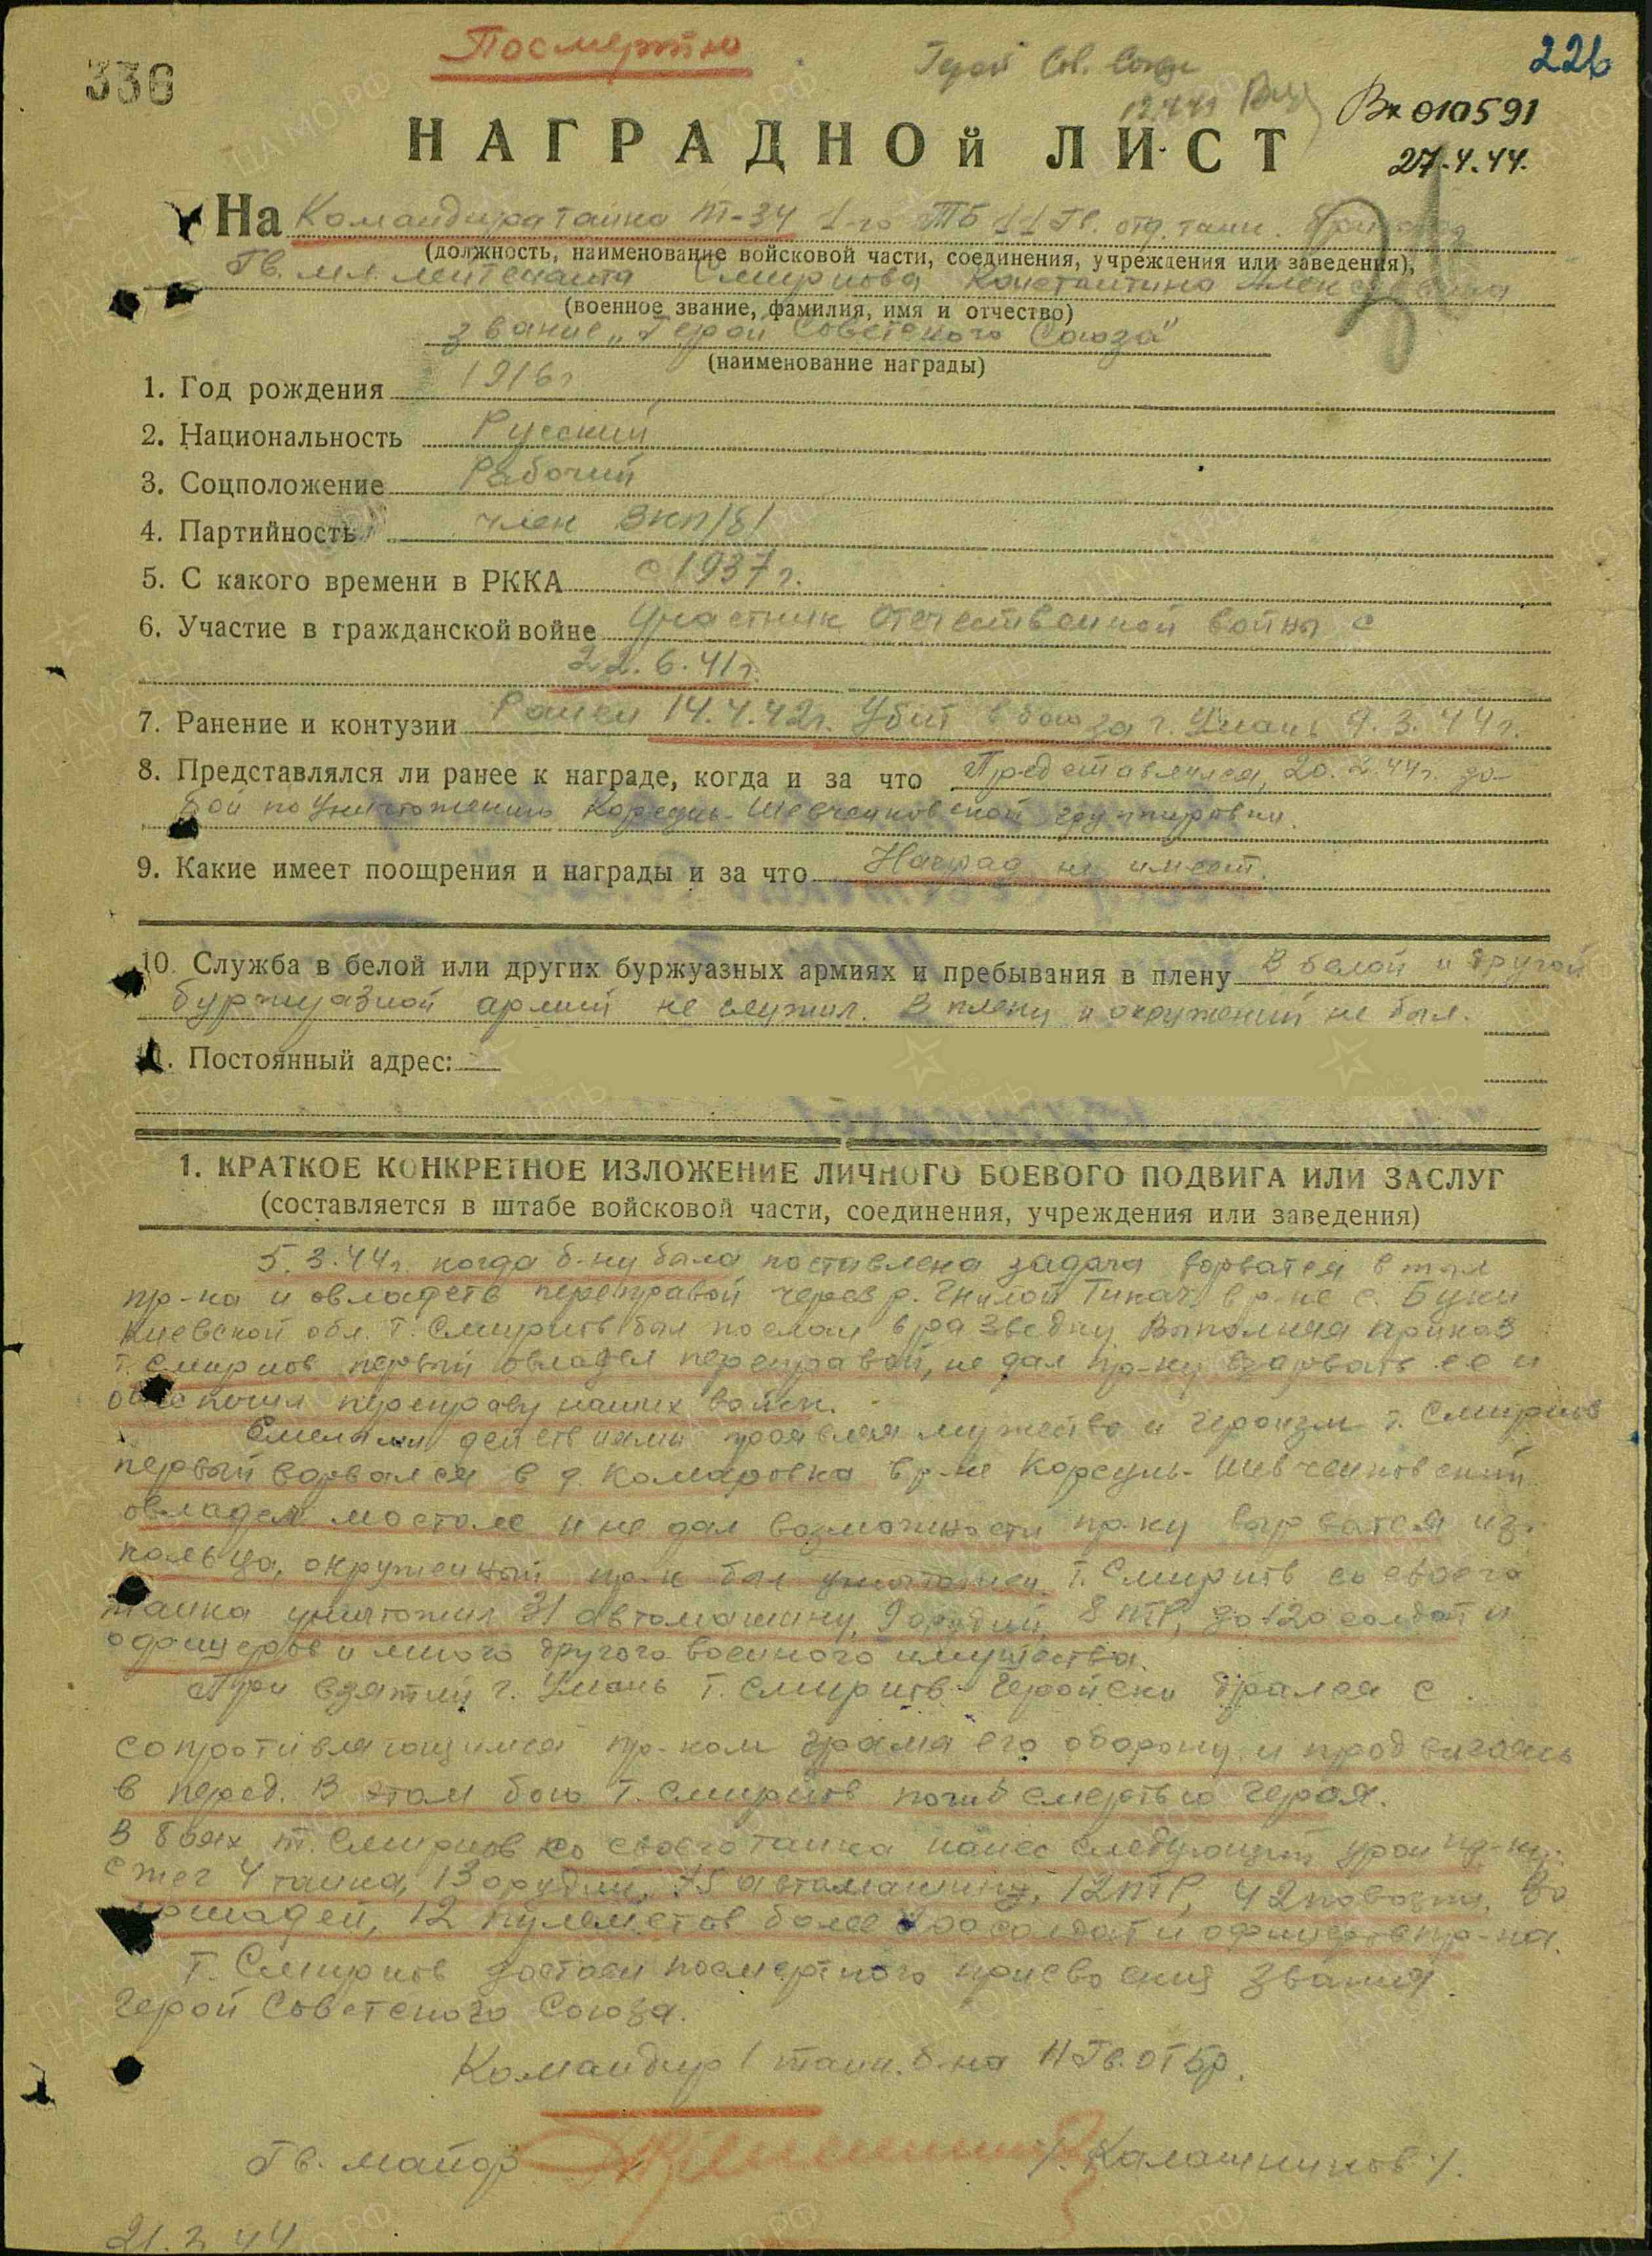 Посмертно
336
Герой Сов. Союза
226
Вх 010591
27.4.44.
НАГРАДНОЙ ЛИСТ
На Командира танка Т-34 1-го ТБ 11 Гв. отд. танк. бригады
(должность, наименование войсковой части, соединения, учреждения или заведения),
Гв. мл. лейтенанта Смирнова Константина
(военное звание, фамилия, имя и отчество)
звание „Герой Советского Союза"
(наименование награды)
1. Год рождения 1916 г
2. Национальность Русский
3. Соцположение Рабочий
4. Партийность член ВКП/б/
5. С какого времени в РККА с 1937 г.
6. Участие в гражданской войне Участник Отечественной войны с
22.6.41 г.
7. Ранение и контузии Ранен 14.4.42 г. Убит в бою за г. Умань 9.3.44 г.
8. Представлялся ли ранее к награде, когда и за что Представлялся, 20.2.44 г. за
бой по уничтожению Корсунь-Шевченковской группировки.
9. Какие имеет поощрения и награды и за что Наград не имеет.
10. Служба в белой или других буржуазных армиях и пребывания в плену В белой и другой
буржуазной армий не служил. В плену и окружений не был.
11. Постоянный адрес:
1. КРАТКОЕ КОНКРЕТНОЕ ИЗЛОЖЕНИЕ ЛИЧНОГО БОЕВОГО ПОДВИГА ИЛИ ЗАСЛУГ
(составляется в штабе войсковой части, соединения, учреждения или заведения)
5.3.44 г. когда б-ну была поставлена задача ворватся в тыл
пр-ка и овладеть переправой через р. Гнилой Тикач в р-не с. Буки
Киевской обл. т. Смирнов был послан в разведку Выполняя приказ
т. Смирнов первый овладел переправой, не дал пр-ку взорвать ее и
обеспечил переправу наших войск.
Смелыми действиями проявляя мужество и героизм т. Смирнов
первый ворвался в д. Комаровка в р-не Корсунь-Шевченковский
овладел мостом и не дал возможности пр-ку вырватся из
кольца, окруженный пр-к был уничтожен. т. Смирнов со своего
танка уничтожил 31 автомашину, 9 орудий, 8 ПТР, до 120 солдат и
офицеров и много другого военного имущества.
При взятий г. Умань т. Смирнов геройски дрался с
сопротивляющимся пр-ком громя его оборону и продвигаясь
в перед. В этом бою т. Смирнов погиб смертью героя.
В боях т. Смирнов со своего танка нанес следующий урон пр-ку:
сжег 4 танка, 13 орудий, 75 автомашин, 12 ПТР, 42 повозки, 30
лошадей, 12 пулеметов более 400 солдат и офицеров пр-ка.
Т. Смирнов достоен посмертного присвоения звания
Герой Советского Союза.
Командир 1 танк. б-на 11 Гв. ОТБр.
Гв. майор /Калашников/.
21.3.44